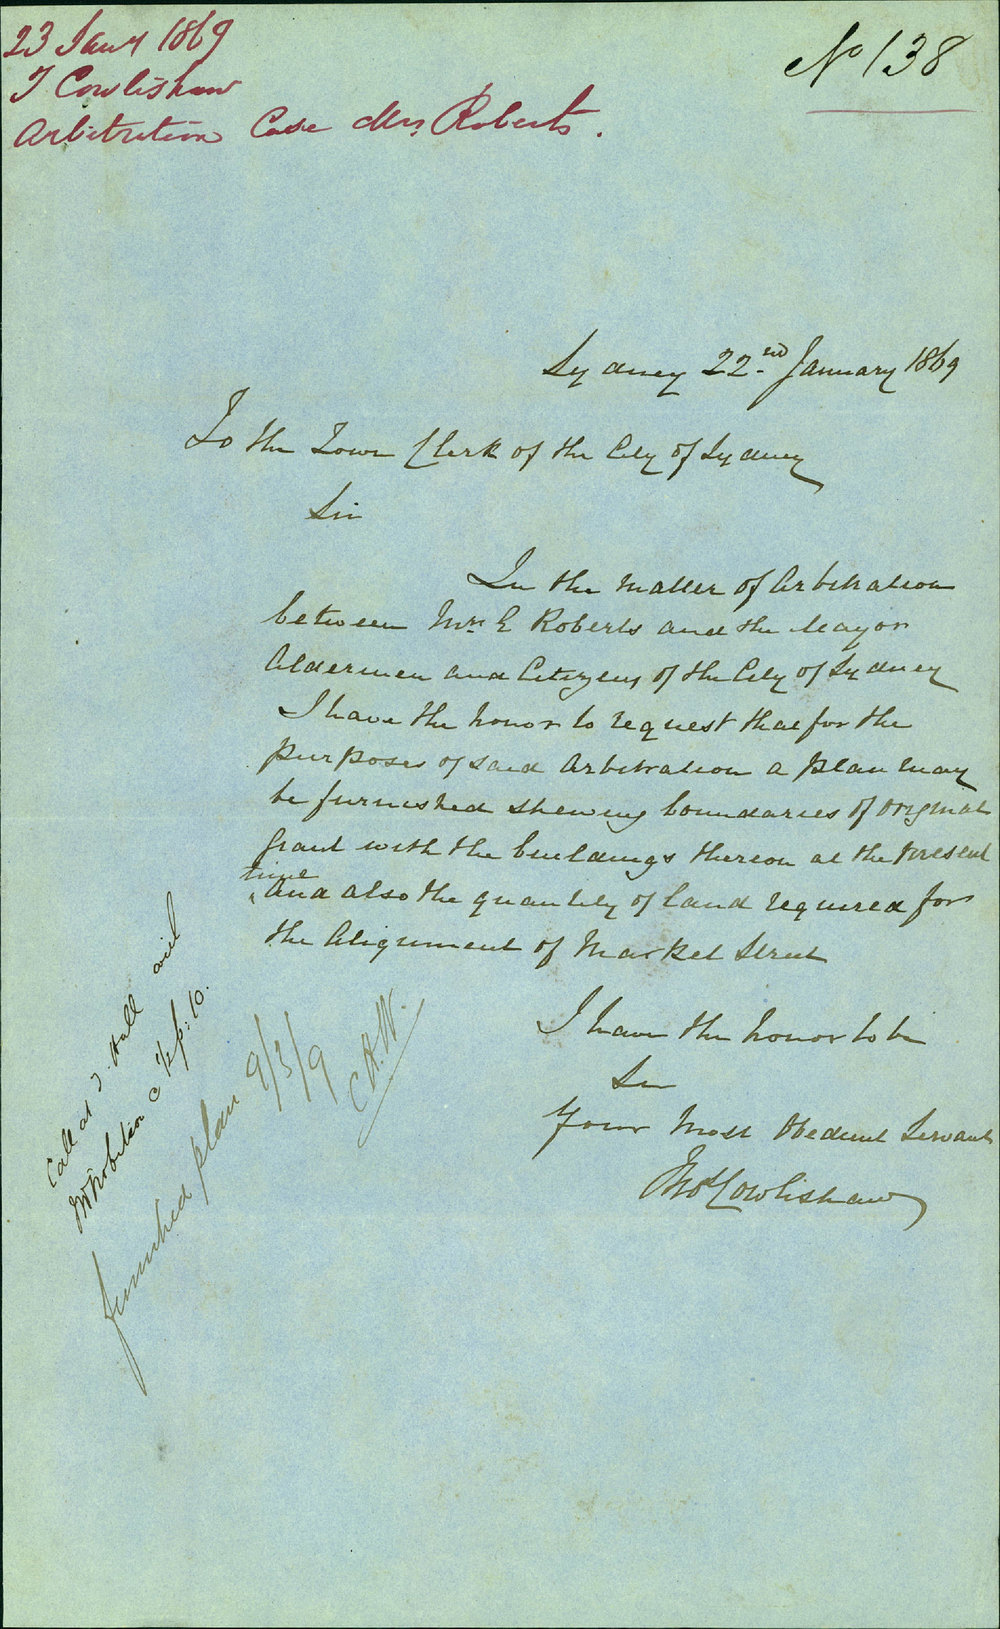 23 Jany 1869
T Cowlishaw
Arbitration Case Mrs Roberts.
No 138
Sydney 22nd January 1869
To the Town Clerk of the City of Sydney
Sir
In the matter of Arbitration
between Mrs E Roberts and the Mayor
Aldermen and Citizens of the City of Sydney
I have the honor to request that for the
purposes of said Arbitration a plan may
be furnished shewing boundaries of original
Grant with the buildings thereon at the present
time
And also the quantity of land required for
the Alignment of Market Street
I have the honor to be
Sir
Your Most Obedient Servant
Thos Cowlishaw
Call at T. Hall with
furnished plan 9/3/9 C.A.W.